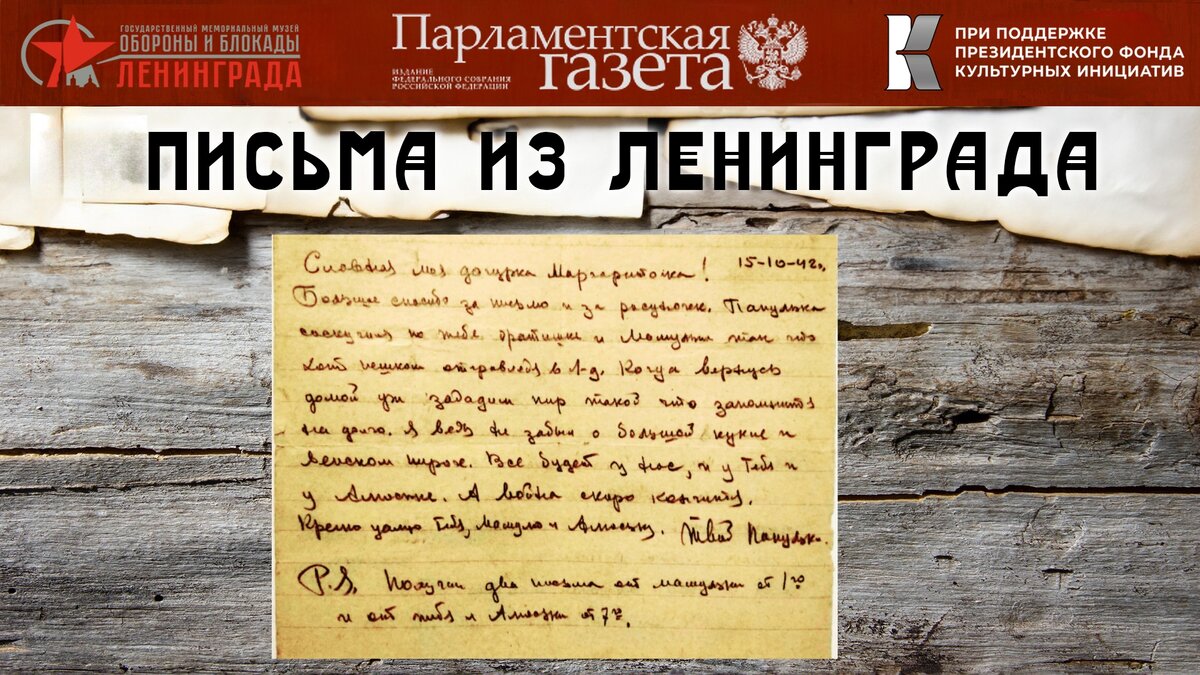 ГОСУДАРСТВЕННЫЙ МЕМОРИАЛЬНЫЙ МУЗЕЙ
ОБОРОНЫ И БЛОКАДЫ
ЛЕНИНГРАДА
Парламентская
газета
ИЗДАНИЕ
ФЕДЕРАЛЬНОГО СОБРАНИЯ
РОССИЙСКОЙ ФЕДЕРАЦИИ
ПРИ ПОДДЕРЖКЕ
ПРЕЗИДЕНТСКОГО ФОНДА
КУЛЬТУРНЫХ ИНИЦИАТИВ
ПИСЬМА ИЗ ЛЕНИНГРАДА
Славная моя дочурка Маргариточка! 15-10-42г.
Большое спасибо за письмо и за рисуночек. Папулька
соскучился по тебе братишке и Мамульке так что
хоть пешком отправляйся в Л-д. Когда вернусь
домой уж зададим пир такой что запомнится
на долго. Я ведь не забыл о большой кукле и
венском пироге. Всё будет у нас, и у Тебя и
у Алюськи. А война скоро кончится.
Крепко целую Тебя, Мамулю и Алюську. Твой Папулька.
P.S. Получил два письма от мамульки от 1го
и от тебя и Алюськи от 7го.